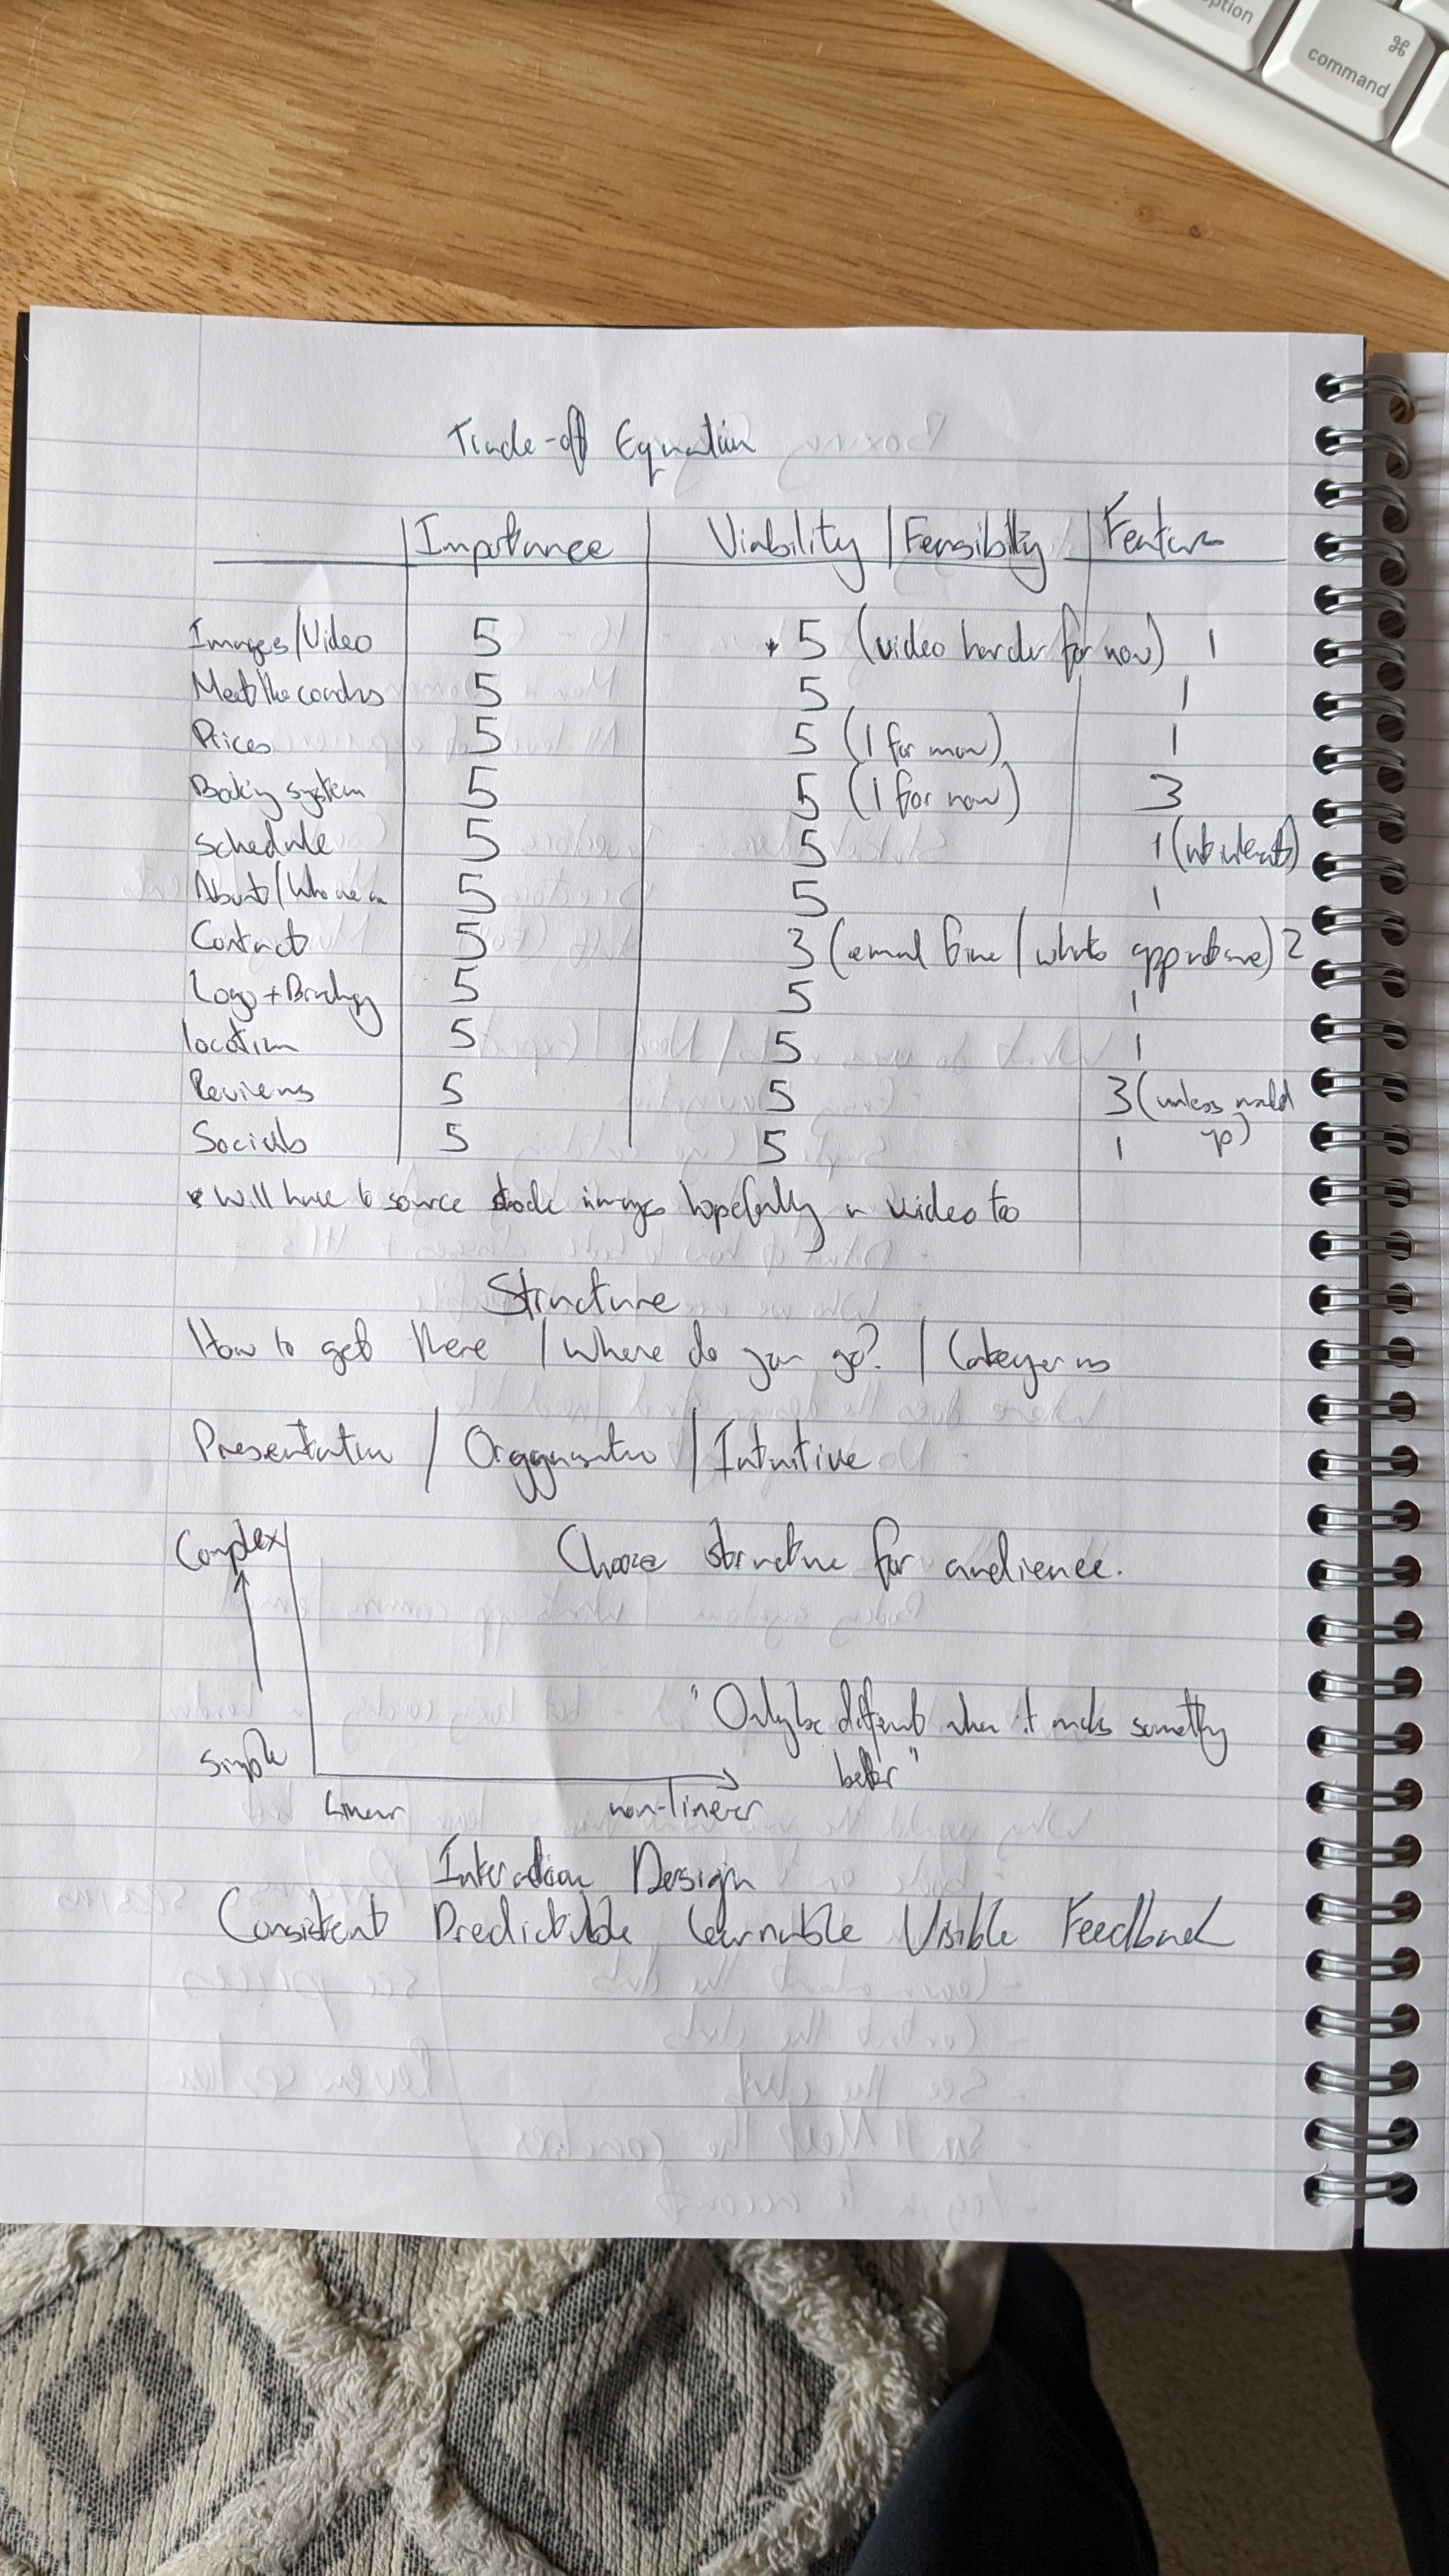 option
⌘
command
Trade-off Equation
Importance Viability / Feasibility Feature
Images/Video 5 * 5 (video harder for now) 1
Meet the coaches 5 5 1
Prices 5 5 (1 for now) 1
Booking system 5 5 (1 for now) 3
Schedule 5 5 1
About/Who we 5 5 1
Contact 5 3 (email fine / whats app) 2
Logo + Branding 5 5 1
location 5 5 1
Reviews 5 5 3 (unless
Socials 5 5 1
* Will have to source stock images hopefully a video too
Structure
How to get there / Where do you go? / Categories
Presentation / / Intuitive
Complex
Choose structure for audience.
"Only be different when it makes something
Simple better"
linear non-linear
Interaction Design
Consistent Predictable Learnable Visible Feedback